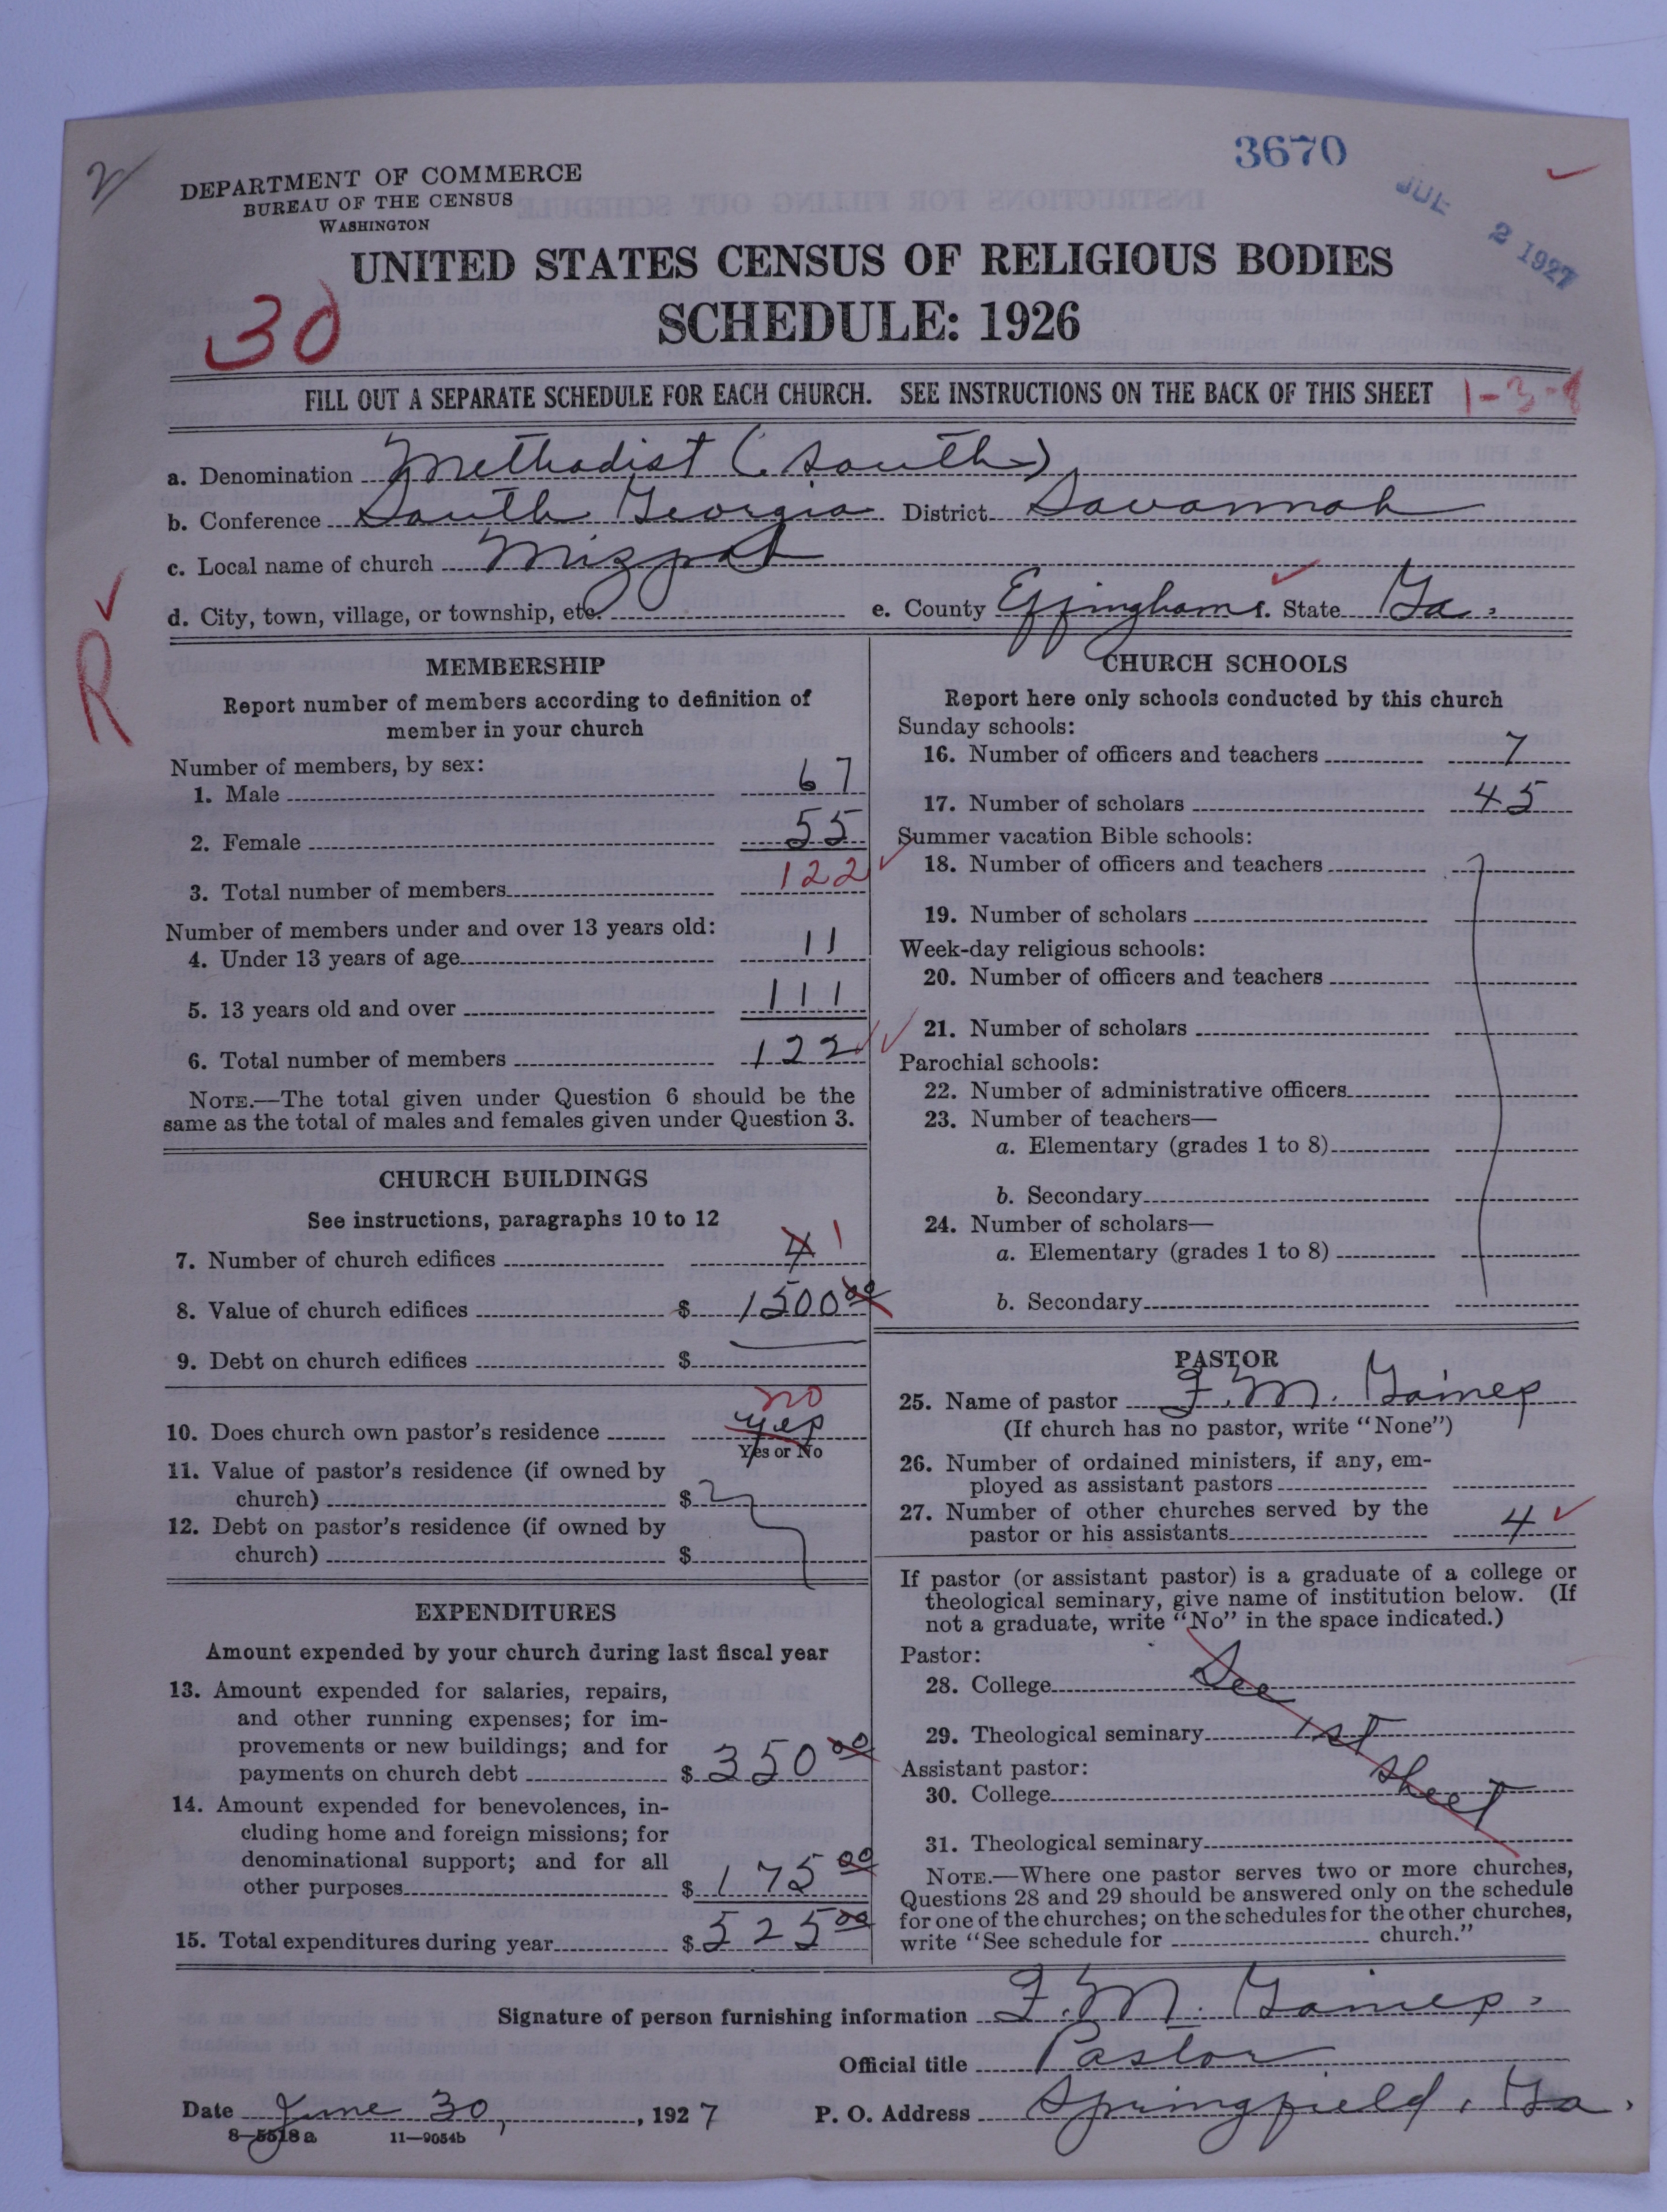 3670
JUL 2 1927
2
DEPARTMENT OF COMMERCE
BUREAU OF THE CENSUS
WASHINGTON
UNITED STATES CENSUS OF RELIGIOUS BODIES
SCHEDULE: 1926
30
FILL OUT A SEPARATE SCHEDULE FOR EACH CHURCH. SEE INSTRUCTIONS ON THE BACK OF THIS SHEET 1-3-
a. Denomination Methodist (South)
b. Conference South Georgia District Savannah
c. Local name of church Mizpah
d. City, town, village, or township, etc. e. County Effingham f. State Ga.
R
MEMBERSHIP
Report number of members according to definition of
member in your church
Number of members, by sex:
1. Male 67
2. Female 55
3. Total number of members 122
Number of members under and over 13 years old:
4. Under 13 years of age 11
5. 13 years old and over 111
6. Total number of members 122
NOTE.—The total given under Question 6 should be the
same as the total of males and females given under Question 3.
CHURCH BUILDINGS
See instructions, paragraphs 10 to 12
7. Number of church edifices 4 1
8. Value of church edifices $ 1500 00
9. Debt on church edifices $
no
10. Does church own pastor's residence yes
Yes or No
11. Value of pastor's residence (if owned by
church) $
12. Debt on pastor's residence (if owned by
church) $
EXPENDITURES
Amount expended by your church during last fiscal year
13. Amount expended for salaries, repairs,
and other running expenses; for im-
provements or new buildings; and for
payments on church debt $ 350 00
14. Amount expended for benevolences, in-
cluding home and foreign missions; for
denominational support; and for all
other purposes $ 175 00
15. Total expenditures during year $ 525 00
CHURCH SCHOOLS
Report here only schools conducted by this church
Sunday schools:
16. Number of officers and teachers 7
17. Number of scholars 45
Summer vacation Bible schools:
18. Number of officers and teachers
19. Number of scholars
Week-day religious schools:
20. Number of officers and teachers
21. Number of scholars
Parochial schools:
22. Number of administrative officers
23. Number of teachers—
a. Elementary (grades 1 to 8)
b. Secondary
24. Number of scholars—
a. Elementary (grades 1 to 8)
b. Secondary
PASTOR
25. Name of pastor F. M. Gaines
(If church has no pastor, write "None")
26. Number of ordained ministers, if any, em-
ployed as assistant pastors
27. Number of other churches served by the
pastor or his assistants 4
If pastor (or assistant pastor) is a graduate of a college or
theological seminary, give name of institution below. (If
not a graduate, write "No" in the space indicated.)
Pastor:
28. College See
29. Theological seminary 1st
Assistant pastor:
30. College sheet
31. Theological seminary
NOTE.—Where one pastor serves two or more churches,
Questions 28 and 29 should be answered only on the schedule
for one of the churches; on the schedules for the other churches,
write "See schedule for church."
Signature of person furnishing information F. M. Gaines.
Official title Pastor
Date June 30, 1927 P. O. Address Springfield, Ga.
8-5518a 11-9054b